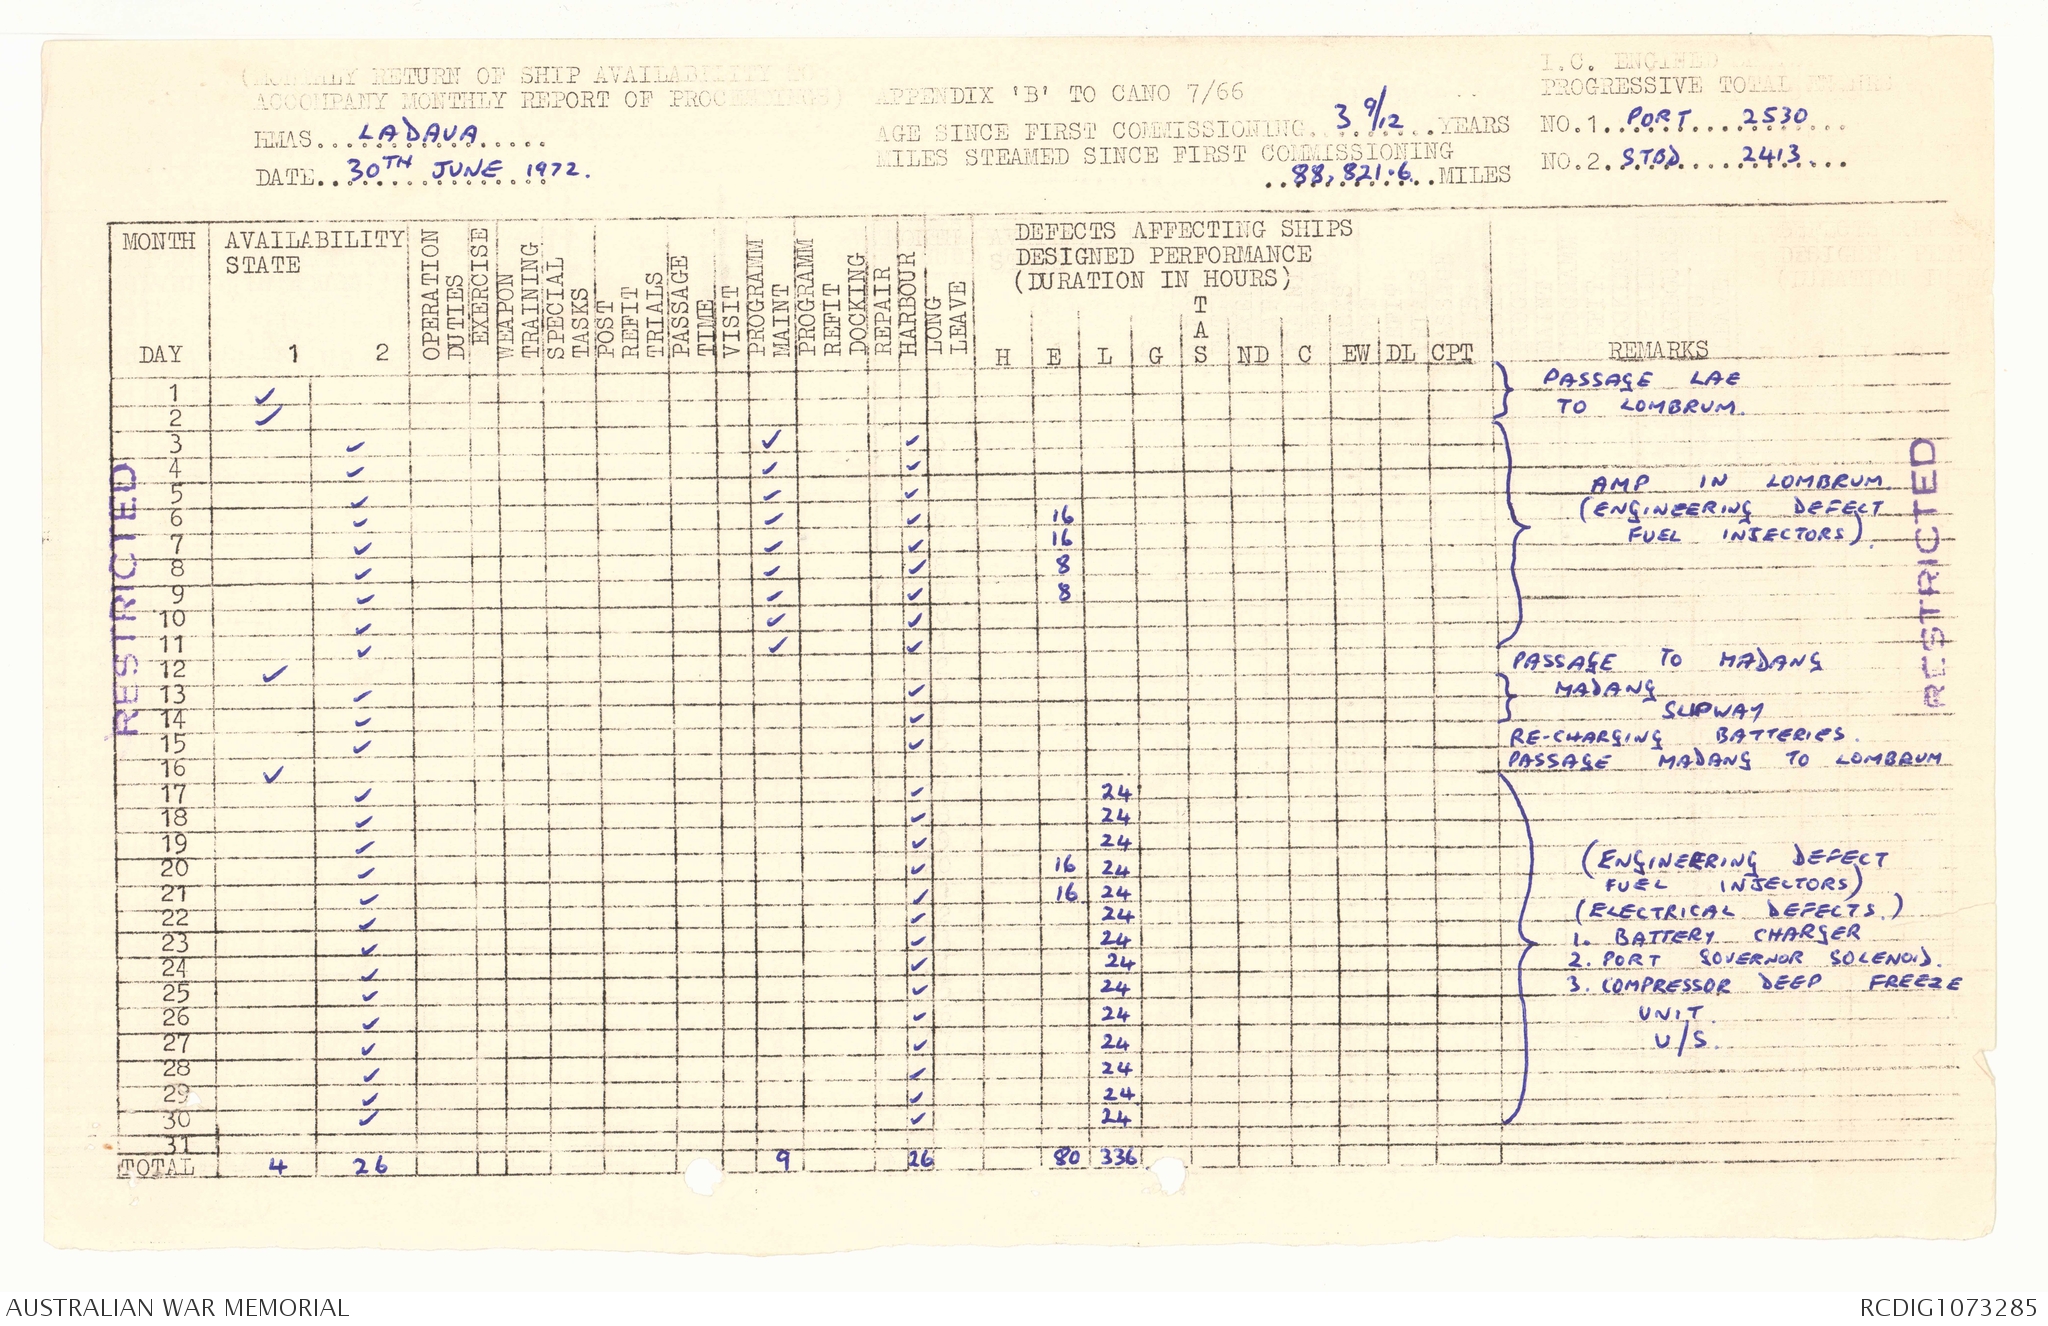 (MONTHLY RETURN OF SHIP AVAILABILITY TO
ACCOMPANY MONTHLY REPORT OF PROCEEDINGS)
HMAS.. LADAVA
DATE.. 30TH JUNE 1972.
APPENDIX 'B' TO CANO 7/66
AGE SINCE FIRST COMMISSIONING.. 3 9/12 ..YEARS
MILES STEAMED SINCE FIRST COMMISSIONING
88,821.6 ..MILES
I.C. ENGINED
PROGRESSIVE TOTAL
NO.1.. PORT 2530
NO.2.. STBD 2413
RESTRICTED
MONTH AVAILABILITY STATE
DAY 1 2
OPERATION DUTIES
EXERCISE
WEAPON TRAINING
SPECIAL TASKS
POST REFIT TRIALS
PASSAGE TIME
VISIT
PROGRAMM MAINT
PROGRAMM REFIT
DOCKING
REPAIR
HARBOUR
LONG LEAVE
DEFECTS AFFECTING SHIPS
DESIGNED PERFORMANCE
(DURATION IN HOURS)
H E L G TAS ND C EW DL CPT
REMARKS
1 ✓ PASSAGE LAE
2 ✓ TO LOMBRUM.
3 ✓ ✓ ✓
4 ✓ ✓ ✓
5 ✓ ✓ ✓ AMP IN LOMBRUM
6 ✓ ✓ ✓ 16 (ENGINEERING DEFECT
7 ✓ ✓ ✓ 16 FUEL INJECTORS).
8 ✓ ✓ ✓ 8
9 ✓ ✓ ✓ 8
10 ✓ ✓ ✓
11 ✓ ✓ ✓
12 ✓ PASSAGE TO MADANG
13 ✓ ✓ MADANG
14 ✓ ✓ SLIPWAY
15 ✓ ✓ RE-CHARGING BATTERIES.
16 ✓ PASSAGE MADANG TO LOMBRUM
17 ✓ ✓ 24
18 ✓ ✓ 24
19 ✓ ✓ 24
20 ✓ ✓ 16 24 (ENGINEERING DEFECT
21 ✓ ✓ 16 24 FUEL INJECTORS)
22 ✓ ✓ 24 (ELECTRICAL DEFECTS.)
23 ✓ ✓ 24 1. BATTERY CHARGER
24 ✓ ✓ 24 2. PORT GOVERNOR SOLENOID.
25 ✓ ✓ 24 3. COMPRESSOR DEEP FREEZE
26 ✓ ✓ 24 UNIT.
27 ✓ ✓ 24 U/S.
28 ✓ ✓ 24
29 ✓ ✓ 24
30 ✓ ✓ 24
31
TOTAL 4 26 9 26 80 336
RESTRICTED
AUSTRALIAN WAR MEMORIAL
RCDIG1073285